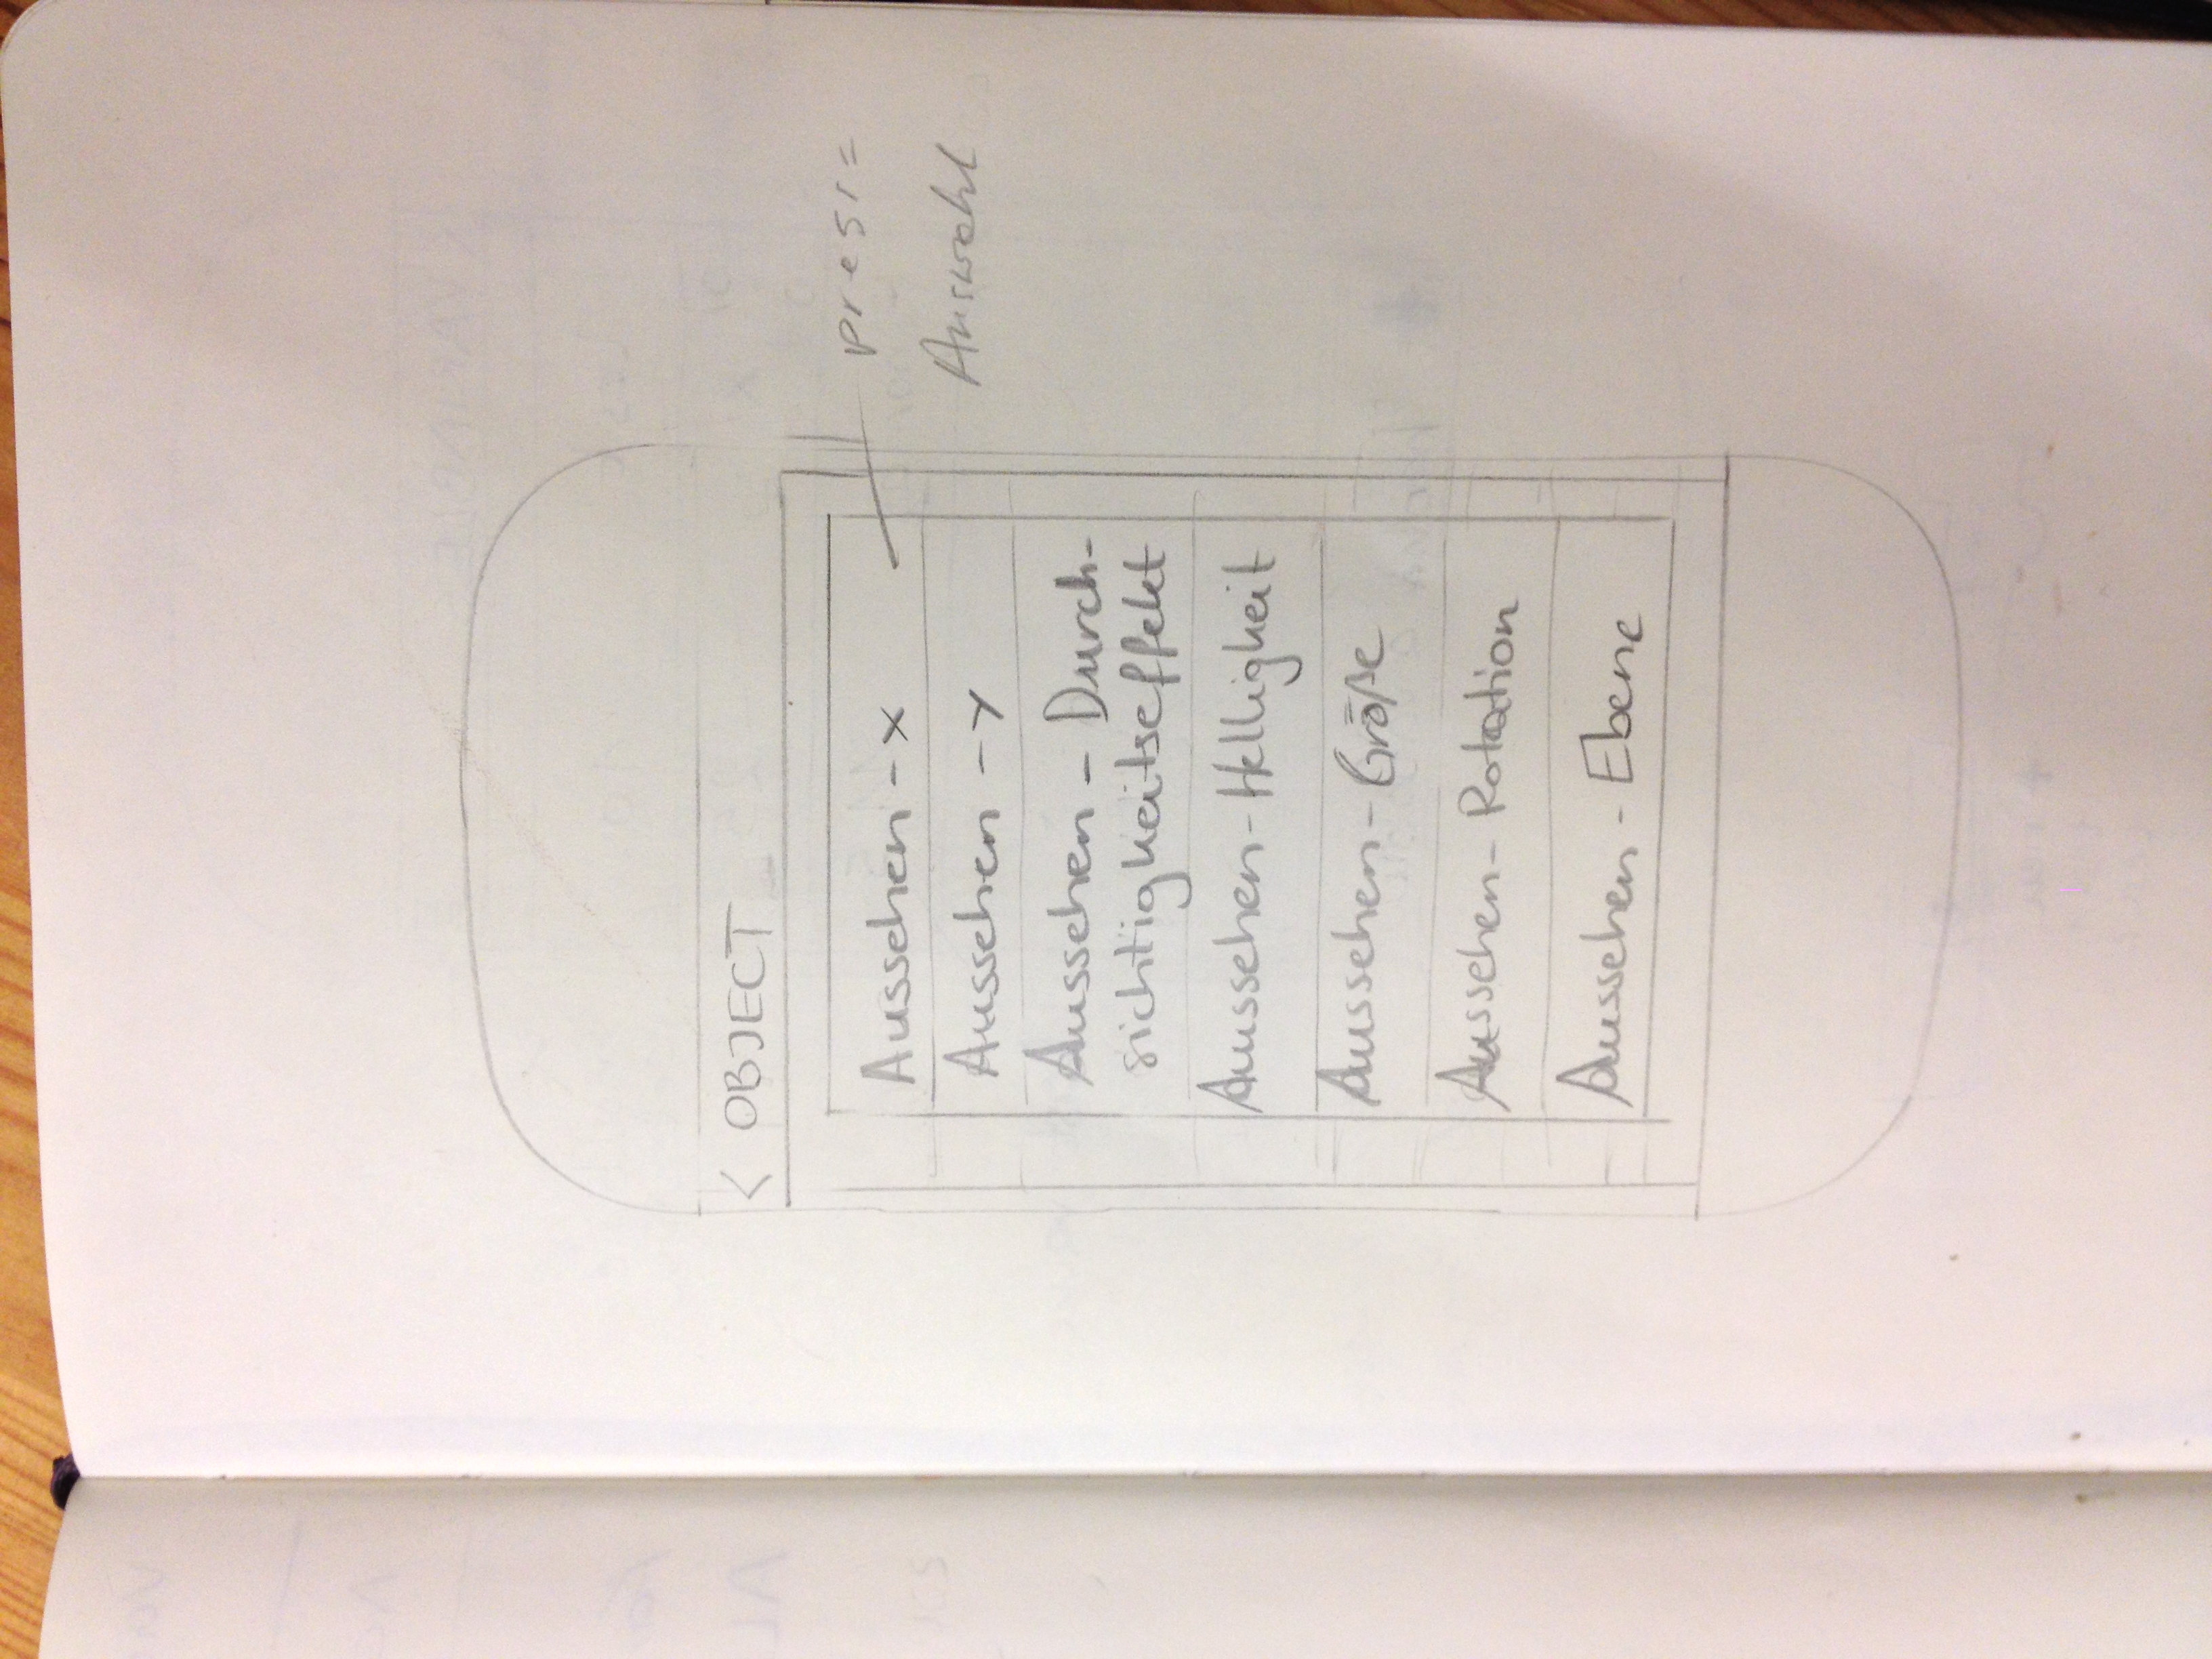 < OBJECT
Aussehen - X
press =
Auswahl
Aussehen - Y
Aussehen - Durch-
sichtigkeitseffekt
Aussehen - Helligkeit
Aussehen - Größe
Aussehen - Rotation
Aussehen - Ebene